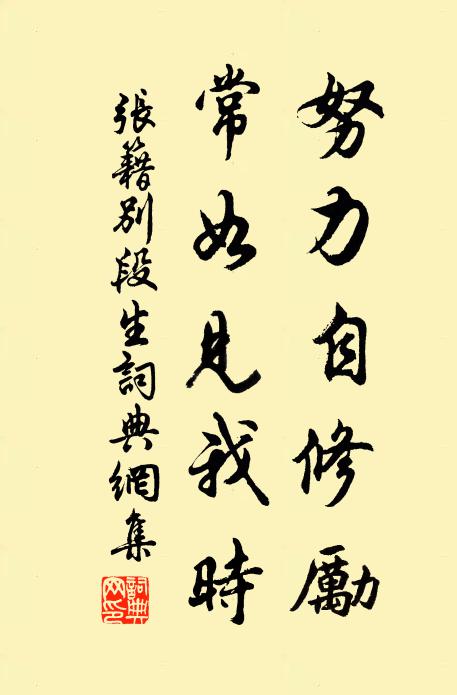 努力自修勵
常如見我時
張籍別段生詞典網集
詞典網印